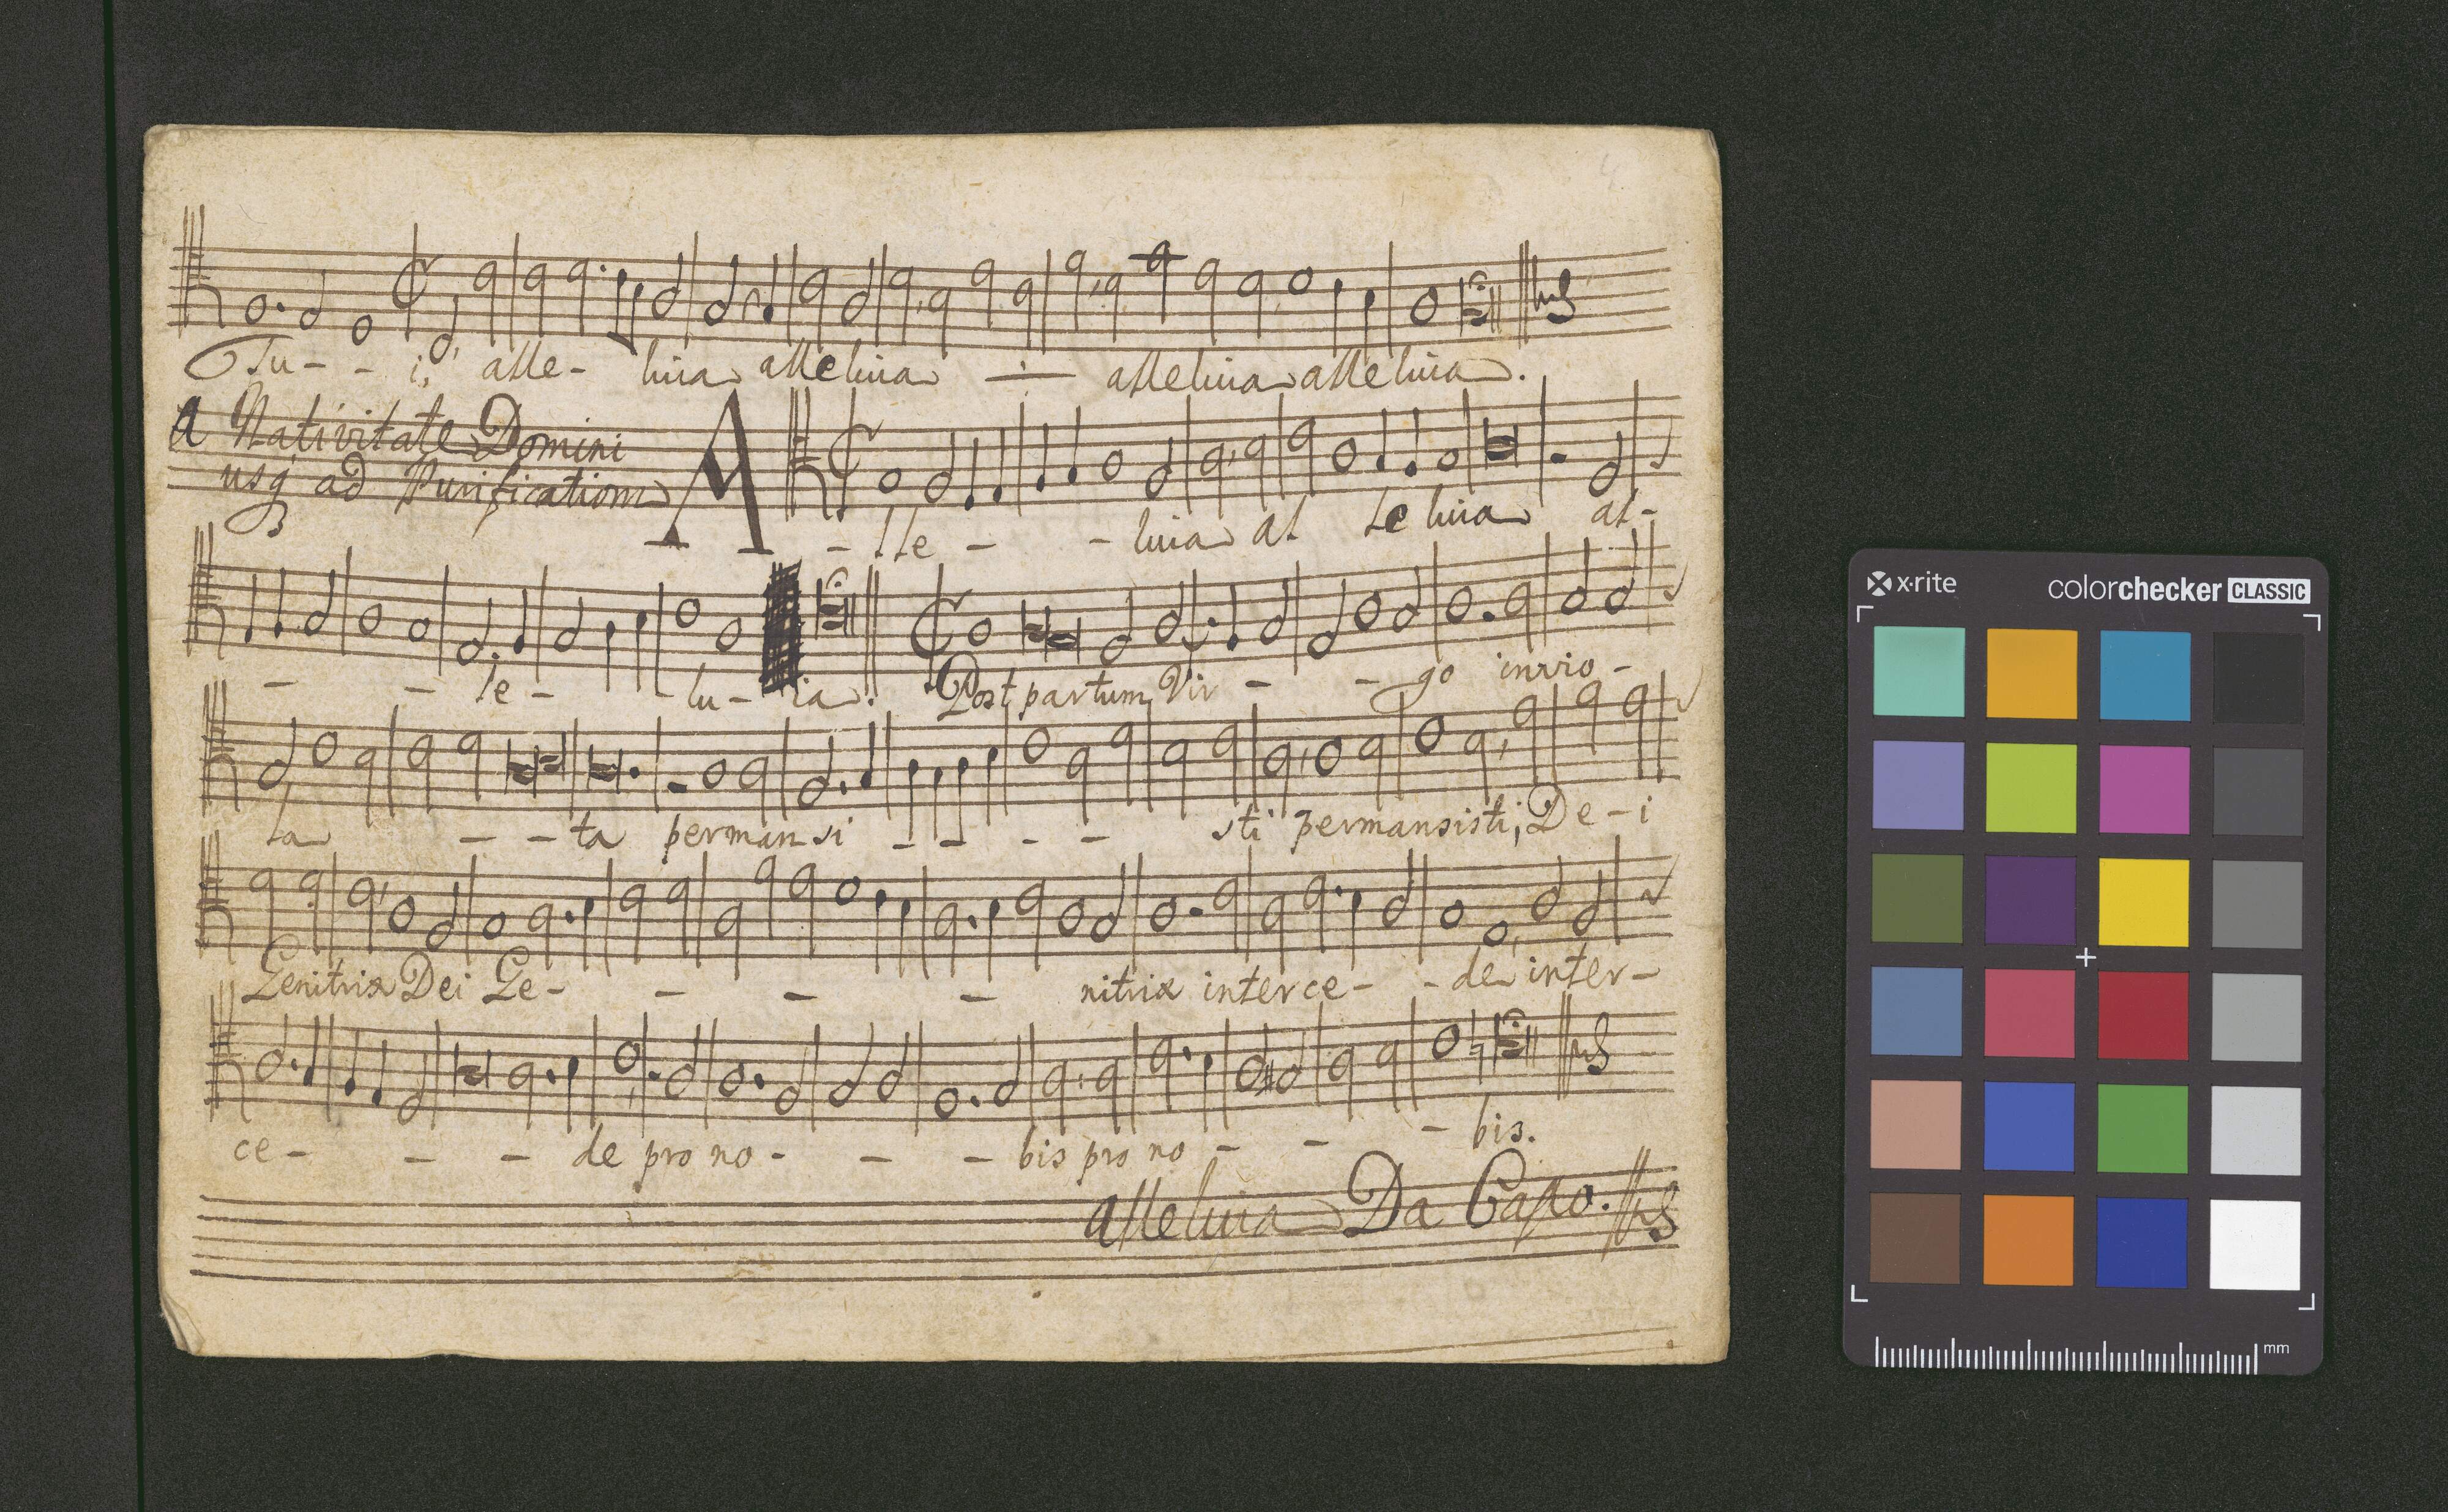 Tu - - i, alle - luia alleluia — alleluia alleluia.
A Nativitate Domini
usq ad Purification
A - lle - - luia al le luia al-
- - le - lu - ia. Post partum Vir - - go invio -
la - - ta permansi - - - - sti permansisti, De - i
Genitrix Dei Ge - - - - nitrix interce - - de inter -
ce - - - de pro no - - - bis pro no - - - bis.
alleluia Da Capo.
4
x·rite colorchecker CLASSIC
mm